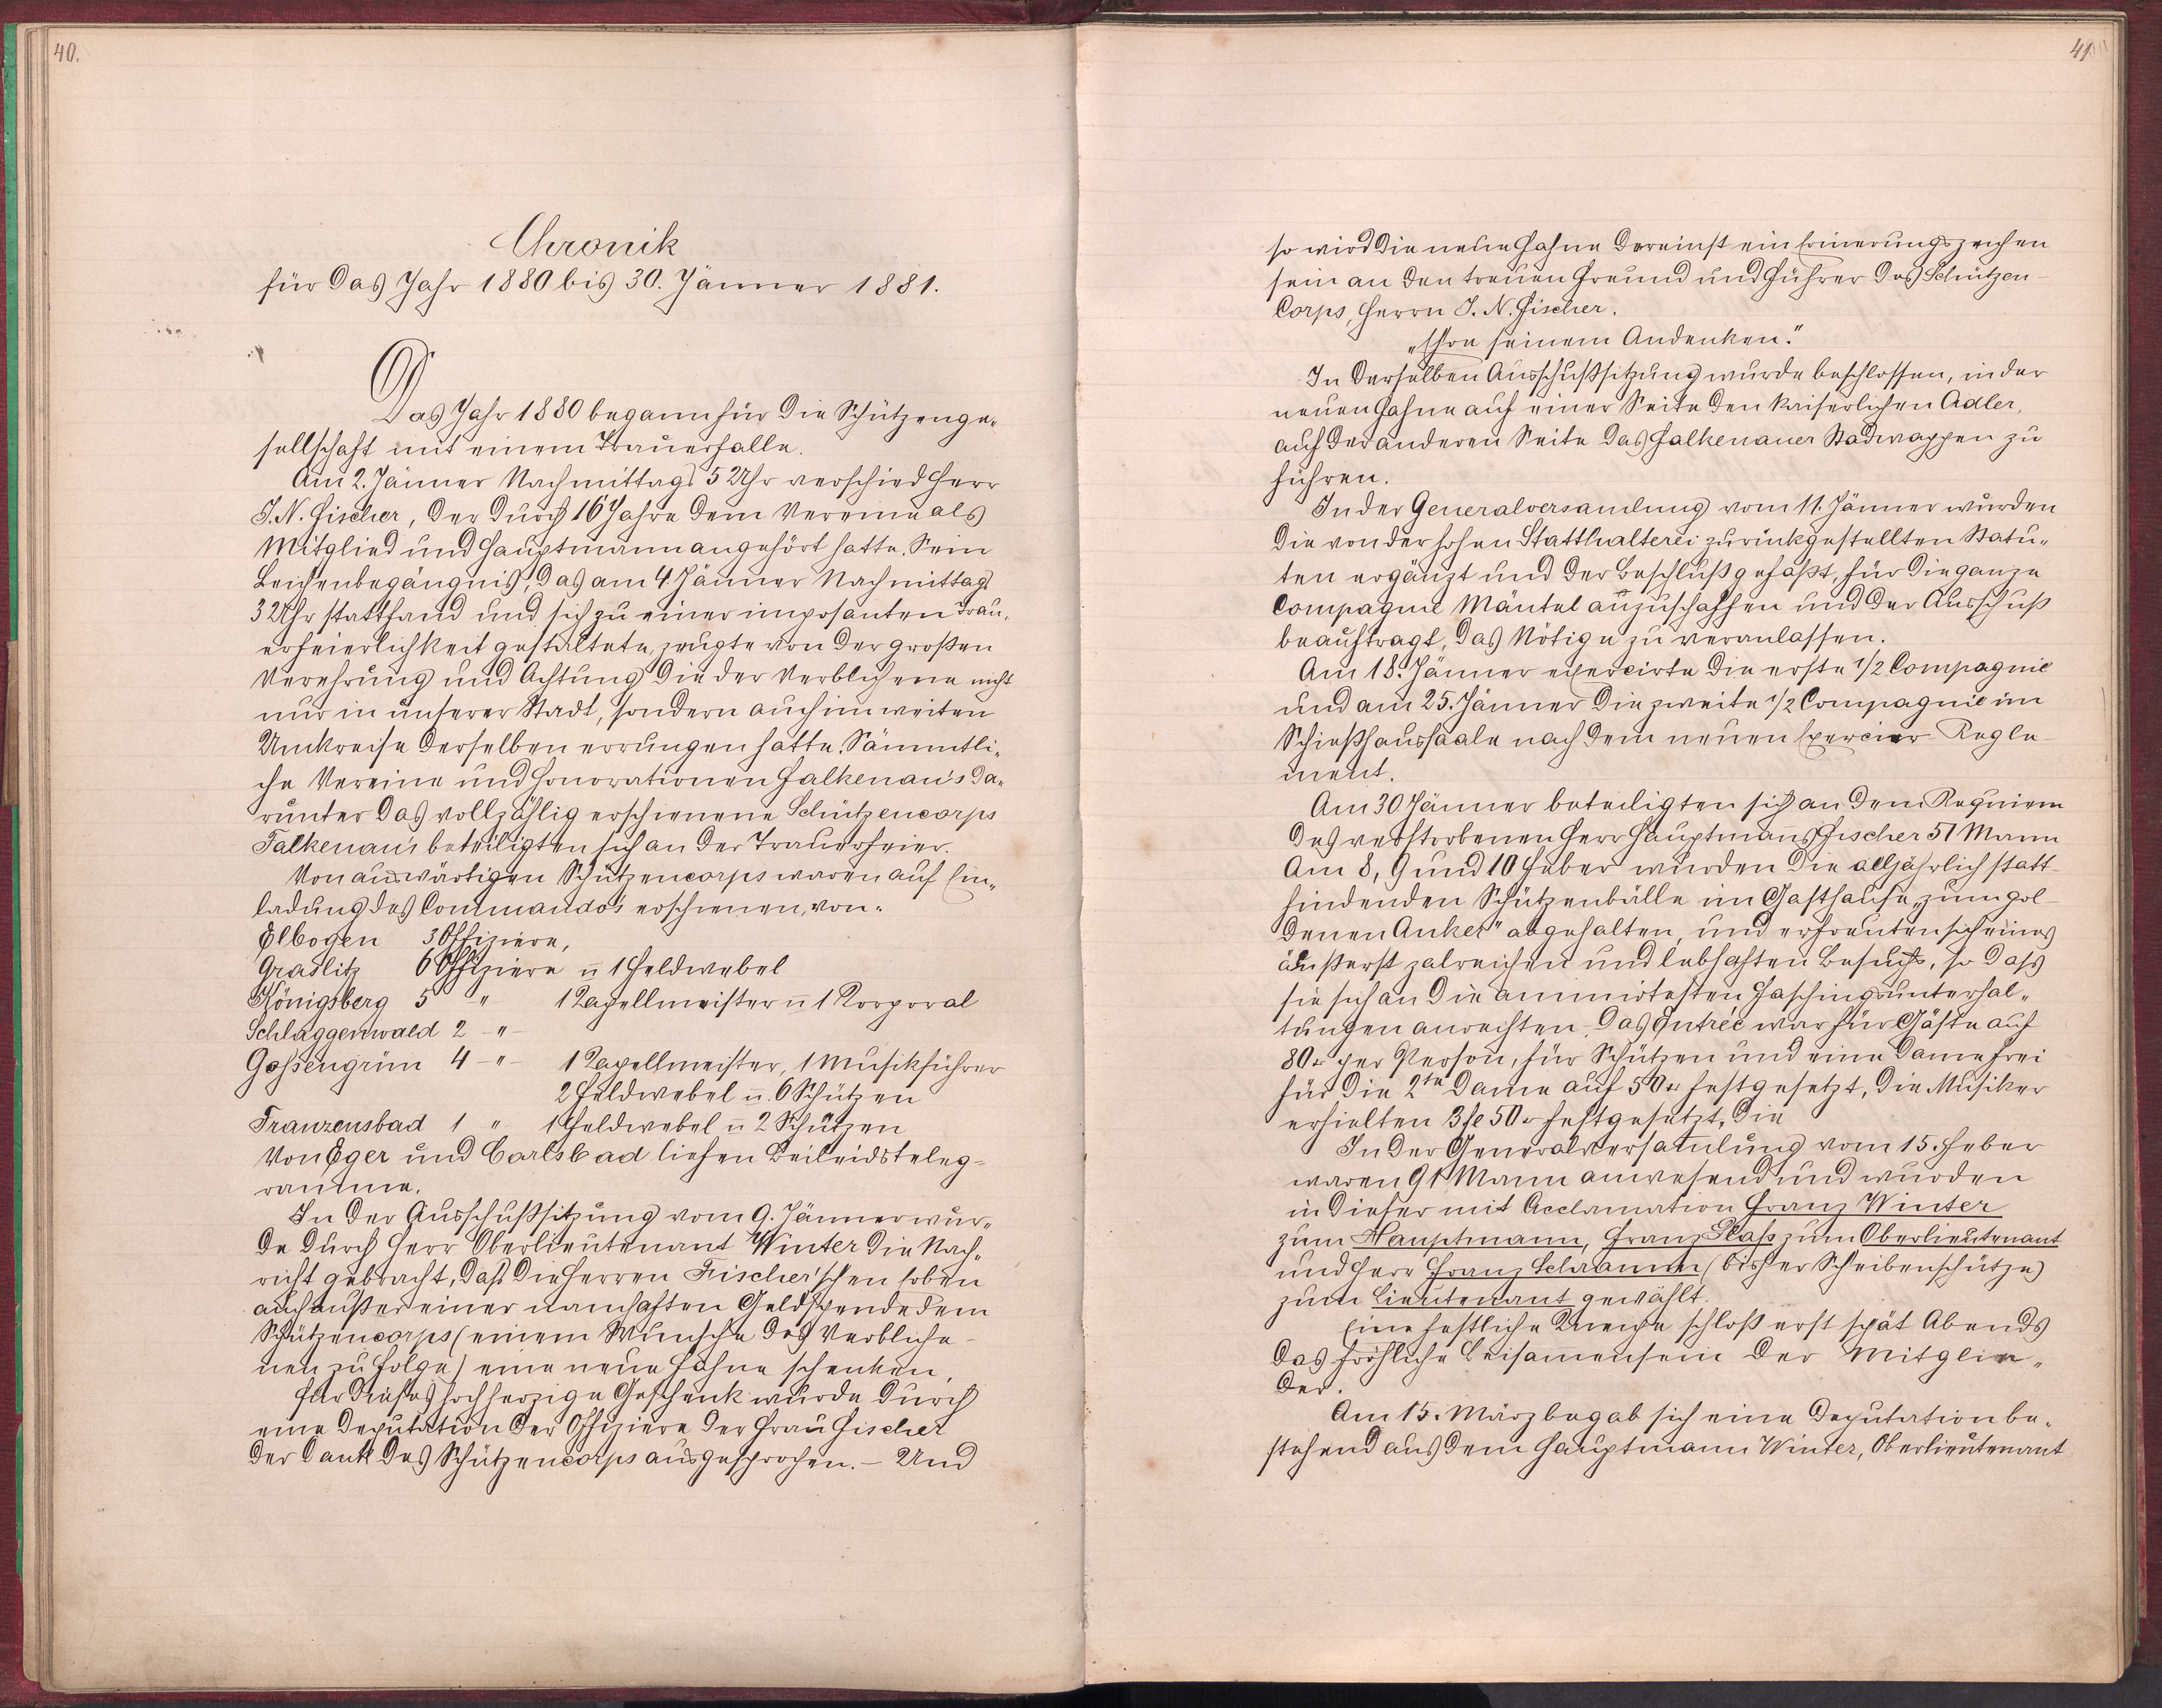 40.
Chronik
für das Jahr 1880 bis 30. Jänner 1881.
Das Jahr 1880 begann für die Schützenge„
sellschaft mit einem Trauerfalle.
Am 2. Jänner Nachmittags 5 Uhr verschied Herr
J. N. Fischer, der durch 16 Jahre dem Vereine als
Mitglied und Hauptmann angehört hatte. Sein
Leichenbegängnis, das am 4. Jänner Nachmittags
3 Uhr stattfand und sich zu einer imposanten Trau„
erfeierlichkeit gestaltete, zeugte von der großen
Verehrung und Achtung die der Verblichene nicht
nur in unserer Stadt, sondern auch im weiten
Umkreise derselben errungen hatte. Sämmtli„
che Vereine und Honorationen Falkenau's da„
runter das vollzählig erschienene Schützencorps
Falkenau's beteiligten sich an der Trauerfeier.
Von auswärtigen Schützencorps waren auf Ein„
ladung des Commando's erschienen, von:
Elbogen 3 Offiziere,
Graslitz 6 Offiziere u 1 Feldwebel
Königsberg 5 " 1 Kapellmeister u 1 Korporal
Schlaggenwald 2 -"-
Gossengrün 4 -"- 1 Kapellmeister, 1 Musikführer
2 Feldwebel u. 6 Schützen
Franzensbad 1 " 1 Feldwebel u 2 Schützen
Von Eger und Carlsbad liefen Beileidsteleg-
ramme.
In der Ausschußsitzung vom 9. Jänner wur„
de durch Herr Oberlieutenant Winter die Nach„
richt gebracht, daß die Herren Fischer'schen Erben
auch außer einer namhaften Geldspende dem
Schützencorps (einem Wunsche des Verbliche-
nen zu Folge) eine neue Fahne schenken,
für dieses hochherzige Geschenk wurde durch
eine Deputation der Offiziere der Frau Fischer
der Dank des Schützencorps ausgesprochen. – Und
41
so wird die neue Fahne dereinst ein Erinerungszeichen
sein an den treuen Freund und Führer des Schützen-
Corps, Herrn J. N. Fischer.
„Ehre seinem Andenken."
In derselben Ausschußsitzung wurde beschlossen, in der
neuen Fahne auf einer Seite den kaiserlichen Adler,
auf der anderen Seite das Falkenauer Stadwappen zu
führen.
In der Generalversamlung vom 11. Jänner wurden
die von der hohen Statthalterei zurückgestellten Statu„
ten ergänzt und der Beschluß gefaßt, für die ganze
Compagnie Mäntel anzuschaffen und der Ausschuß
beauftragt, das Nötige zu veranlassen.
Am 18. Jänner exercirte die erste 1/2 Compagnie
und am 25. Jänner die zweite 1/2 Compagnie im
Schießhaussaale nach dem neuen Exercier-Regle-
ment.
Am 30 Jänner beteiligten sich an dem Requiem
des verstorbenen Herr Hauptmans Fischer 51 Mann
Am 8, 9 und 10 Feber wurden die alljährlich statt-
findenden Schützenbälle im Gasthause „zum gol-
denen Anker" abgehalten, und erfreuten sich eines
äußerst zalreichen und lebhaften Besuchs, so dass
sie sich an die animirtesten Faschingsunterhal„
tungen anreihten. Das Entrée war für Gäste auf
80 kr per Person, für Schützen und eine Dame frei
für die 2te Dame auf 50 kr festgesetzt, die Musiker
erhielten 3 fl 50 kr festgesetzt, die
In der Generalversamlung vom 15. Feber
waren 91 Mann anwesend und wurden
in dieser mit Acclamation Franz Winter
zum Hauptmann, Franz Plass zum Oberlieutenant
und Herr Franz Schramm (bisher Scheibenschütze)
zum Lieutenant gewählt.
Eine festliche Kneipe schloß erst spät Abends
das fröhliche Beisammensein der Mitglie„
der.
Am 15. März begab sich eine Deputation be„
stehend aus dem Hauptmann Winter, Oberlieutenant